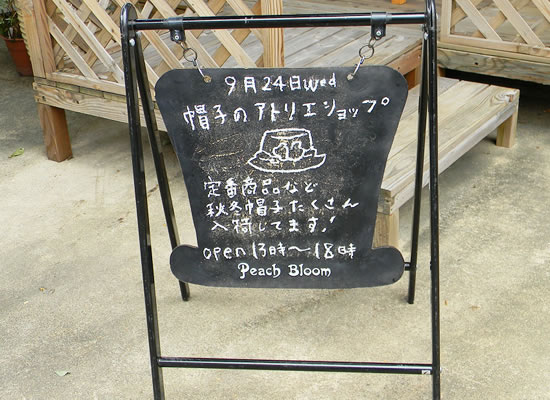 9月24日wed
帽子のアトリエショップ
定番商品など
秋冬帽子たくさん
入荷してます!
open 13時〜18時
Peach Bloom